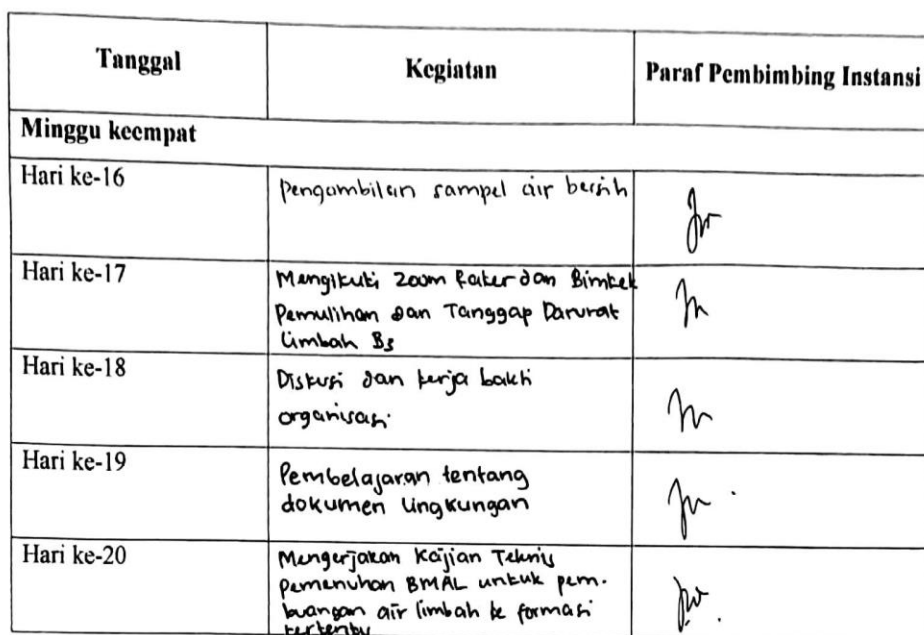 Tanggal Kegiatan Paraf Pembimbing Instansi
Minggu keempat
Hari ke-16 Pengambilan sampel air bersih
Hari ke-17 Mengikuti Zoom Raker dan Bimtek
Pemulihan dan Tanggap Darurat
Limbah B3
Hari ke-18 Diskusi dan kerja bakti
organisasi
Hari ke-19 Pembelajaran tentang
dokumen lingkungan
Hari ke-20 Mengerjakan Kajian Teknis
pemenuhan BMAL untuk pem-
buangan air limbah ke formasi
tertentu